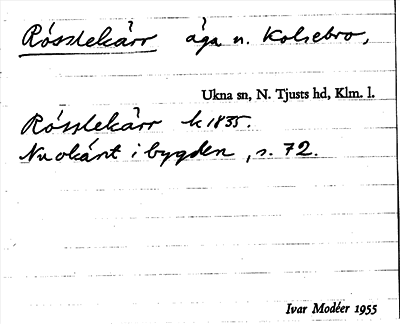 Rósslekärr äga n. Kolsebro,
Ukna sn, N. Tjusts hd, Klm. l.
Rósslekärr k 1835.
Nu okänt i bygden, s. 72.
Ivar Modéer 1955